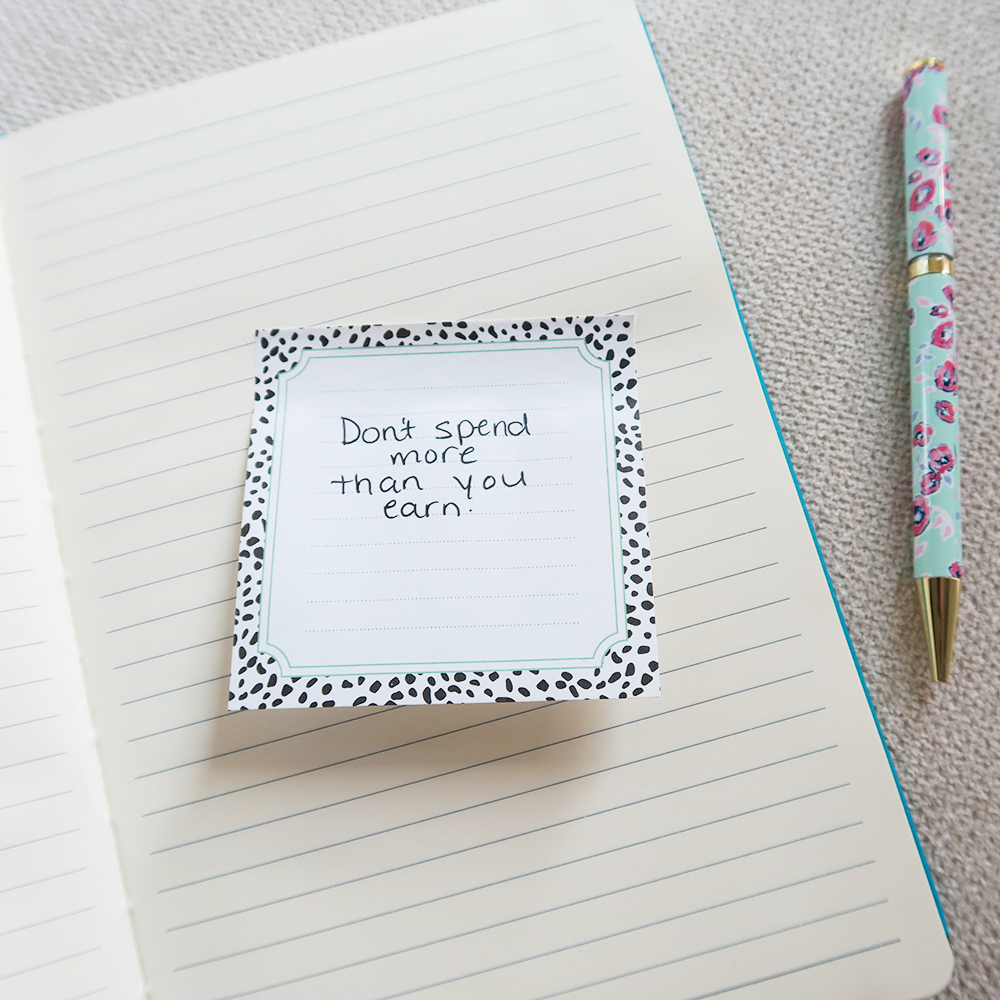 Don't spend
more
than you
earn.